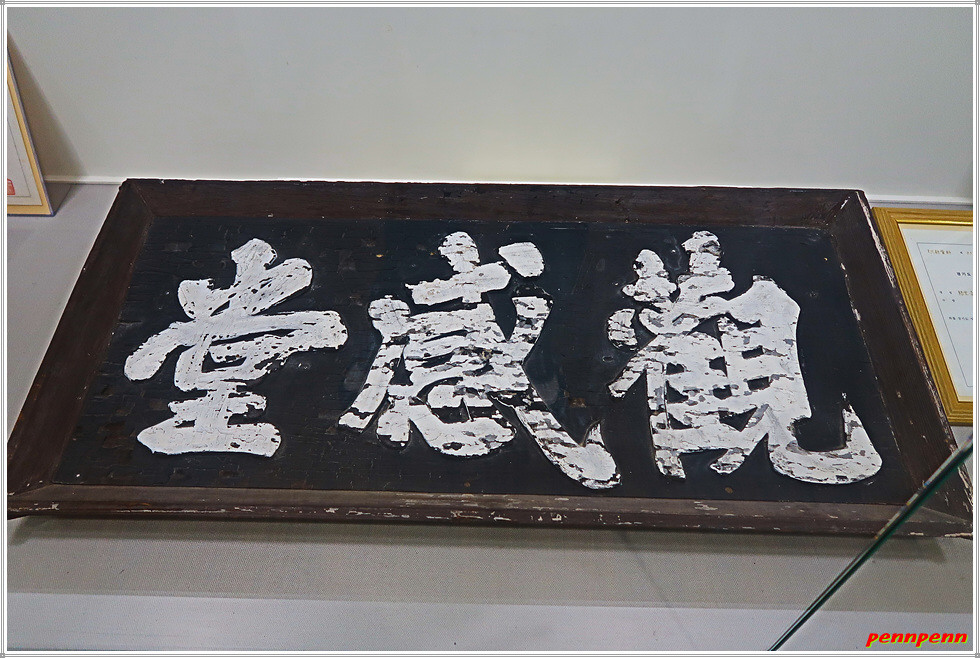 觀感堂
pennpenn